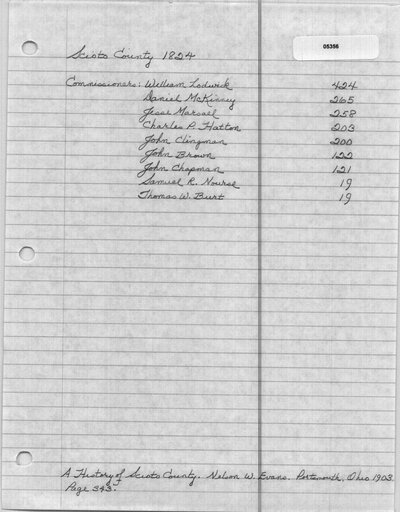 05356
Scioto County 1824
Commissioners: William Lodwick 424
Daniel McKinney 265
Jesse Marsail 258
Charles P. Hatton 203
John Clingman 200
John Brown 122
John Chapman 121
Samuel R. Nourse 19
Thomas W. Burt 19
A History of Scioto County. Nelson W. Evans. Portsmouth, Ohio 1903
Page 343.